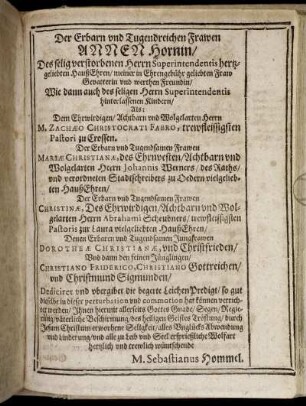 Der Erbarn vnd Tugendreichen Frawen
ANNEN Hornin/
Des selig verstorbenen Herrn Superintendentis hertz-
geliebten HaußEhren/ meiner in Ehrengebühr geliebten Fraw
Gevatterin vnd werthen Freundin/
Wie dann auch des seligen Herrn Superintendentis
hinterlassenen Kindern/
Als:
Dem Ehrwirdigen/ Achtbarn vnd Wolgelarten Herrn
M. ZACHÆO CHRISTOCRATI FABRO, trewfleissigsten
Pastori zu
Der Erbarn vnd Tugendsamen Frawen
MARIÆ CHRISTIANÆ, des Ehrnvesten/ Achtbarn vnd
Wolgelarten Herrn Johannis Werners/ des Raths/
vnd verordneten Stadtschreibers zu Oedern vielgelieb-
ten HaußEhren/
Der Erbarn vnd Tugendsamen Frawen
CHRISTINÆ, Des Ehrwirdigen/ Achtbarn vnd Wol-
gelarten Herrn Abrahami Scheubners/ trewfleissigsten
Pastoris zur vielgeliebten HaußEhren/
Denen Erbarn vnd Tugendsamen Jungfrawen
DOROTHEÆ CHRISTIANÆ, vnd Christfrieden/
Vnd dann den feinen Jünglingen/
CHRISTIANO FRIDERICO, CHRISTIANO Gottreichen/
vnd Christmund Sigmunden/
Dediciret vnd vbergibet die begerte Leichen Predigt/ so gut
dieselbe in dieser perturbation vnd commotion hat können verrich-
tet werden/ Ihnen hiermit allerseits Gottes Gnade/ Segen/ Regie-
rung/ väterliche Beschirmung/ des heiligen Geistes Tröstung/ durch
Jesum Christum erworbene Seligkeit/ alles Vnglücks Abwendung
vnd linderung/ vnd alle zu Leib vnd Seel ersprießliche Wolfart
hertzlich vnd trewlich wünschende
M. Sebastianus Hommel.